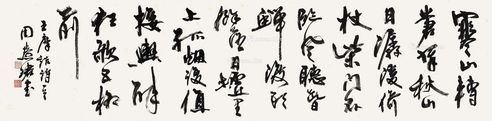 寒山轉
蒼翠秋水
日潺湲倚
杖柴門外
臨風聽暮
蟬渡頭
餘落日墟里
上孤烟復值
接輿醉
狂歌五柳
前
王摩詰詩
周慧珺書